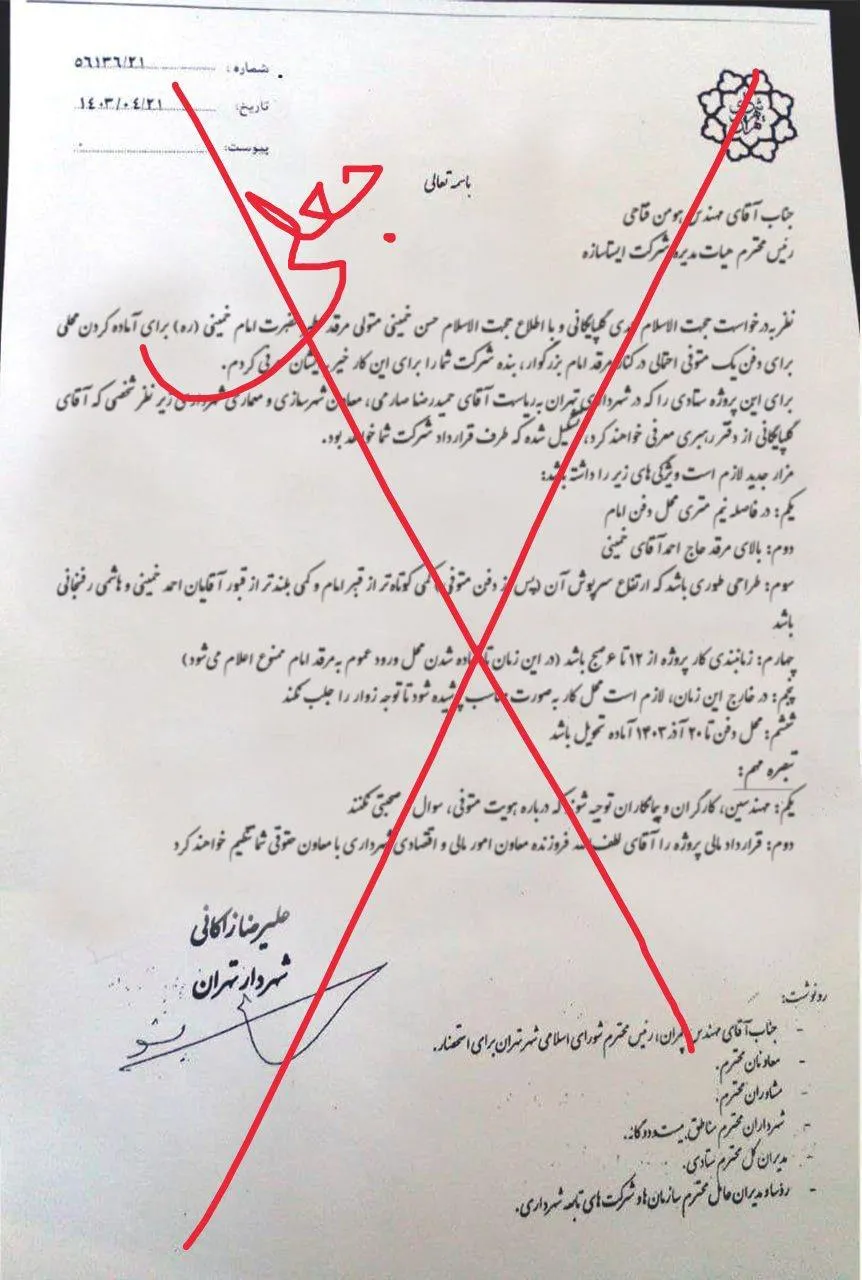 شماره: ٥٦١٣٦/٢١
تاریخ: ١٤٠٣/٠٤/٢١
پیوست:
جعلی
باسمه تعالی
جناب آقای مهندس هومن فتاحی
رئیس محترم هیات مدیره شرکت ایستاسازه
نظر به درخواست حجت الاسلام گلپایگانی و با اطلاع حجت الاسلام حسن خمینی متولی مرقد حضرت امام خمینی (ره) برای آماده کردن محلی
برای دفن یک متوفی احتمالی در کنار مرقد امام بزرگوار، بنده شرکت شما را برای این کار خیر کردم.
برای این پروژه ستادی را که در شهرداری تهران به ریاست آقای حمیدرضا صارمی، معاون شهرسازی و معماری شهرداری زیر نظر شخصی که آقای
گلپایگانی از دفتر رهبری معرفی خواهند کرد، تشکیل شده که طرف قرارداد شرکت شما خواهد بود.
مزار جدید لازم است ویژگی های زیر را داشته باشد:
یکم: در فاصله نیم متری محل دفن امام
دوم: بالای مرقد حاج احمد آقای خمینی
سوم: طراحی طوری باشد که ارتفاع سرپوش آن (پس از دفن متوفی) کمی کوتاه تر از قبر امام و کمی بلندتر از قبور آقایان احمد خمینی و هاشمی رفسنجانی
باشد
چهارم: زمانبندی کار پروژه از ۱۲ تا ۶ صبح باشد (در این زمان تا آماده شدن محل ورود عموم به مرقد امام ممنوع اعلام می‌شود)
پنجم: در خارج این زمان، لازم است محل کار به صورت مناسب پوشیده شود تا توجه زوار را جلب نکند
ششم: محل دفن تا ۲۰ آذر ۱۴۰۳ آماده تحویل باشد
تبصره مهم:
یکم: مهندسین، کارگران و پیمانکاران توجیه شوند که درباره هویت متوفی، سوال صحبتی نکنند
دوم: قرارداد مالی پروژه را آقای لطف الله فروزنده معاون امور مالی و اقتصادی شهرداری با معاون حقوقی شما تنظیم خواهند کرد
علیرضا زاکانی
شهردار تهران
رونوشت:
- جناب آقای مهندس چمران، رئیس محترم شورای اسلامی شهر تهران برای استحضار.
- معاونان محترم.
- مشاوران محترم.
- شهرداران محترم مناطق بیست و دوگانه.
- مدیران کل محترم ستادی.
- رؤسا و مدیران عامل محترم سازمان ها و شرکت های تابعه شهرداری.